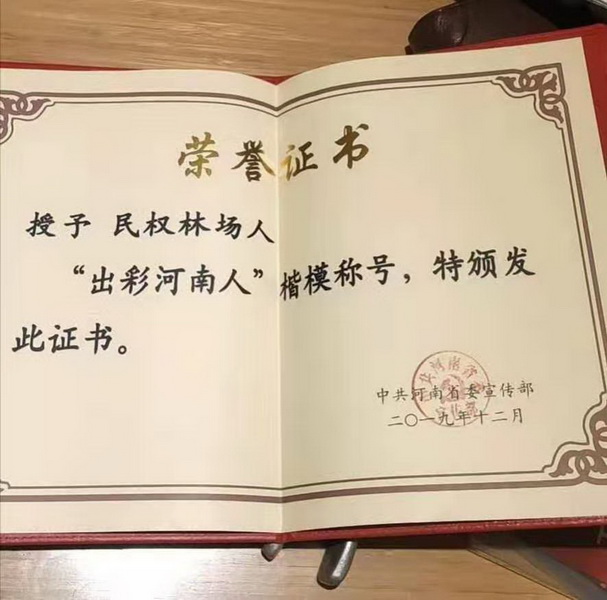 荣誉证书
授予 民权林场人
“出彩河南人”楷模称号，特颁发
此证书。
中共河南省委宣传部
二〇一九年十二月